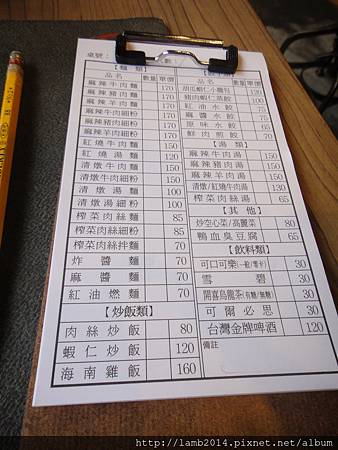 桌號:
人數:
【麵類】
品名 數量 單價
麻辣牛肉麵 170
麻辣豬肉麵 170
麻辣羊肉麵 170
麻辣牛肉細粉 170
麻辣豬肉細粉 170
麻辣羊肉細粉 170
紅燒牛肉麵 150
紅燒湯麵 120
清燉牛肉麵 150
清燉牛肉細粉 150
清燉湯麵 100
清燉湯細粉 100
榨菜肉絲麵 85
榨菜肉絲細粉 85
榨菜肉絲拌麵 70
炸醬麵 70
麻醬麵 70
紅油燃麵 70
【炒飯類】
肉絲炒飯 80
蝦仁炒飯 120
海南雞飯 160
品名 數量 單價
甜瓜蝦仁小籠包 120
豬肉蝦仁蒸餃 100
紅油水餃 75
麻醬水餃 75
原味水餃 65
鮮肉煎餃 70
【湯類】
麻辣牛肉湯 150
麻辣豬肉湯 150
麻辣羊肉湯 150
清燉/紅燒牛肉湯 130
榨菜肉絲湯 65
【其他】
炒空心菜/高麗菜 80
鴨血臭豆腐 65
【飲料類】
可口可樂(一般/零卡) 30
雪碧 30
開喜烏龍茶(有糖/無糖) 30
可爾必思 30
台灣金牌啤酒 120
備註
http://lamb2014.pixnet.net/album